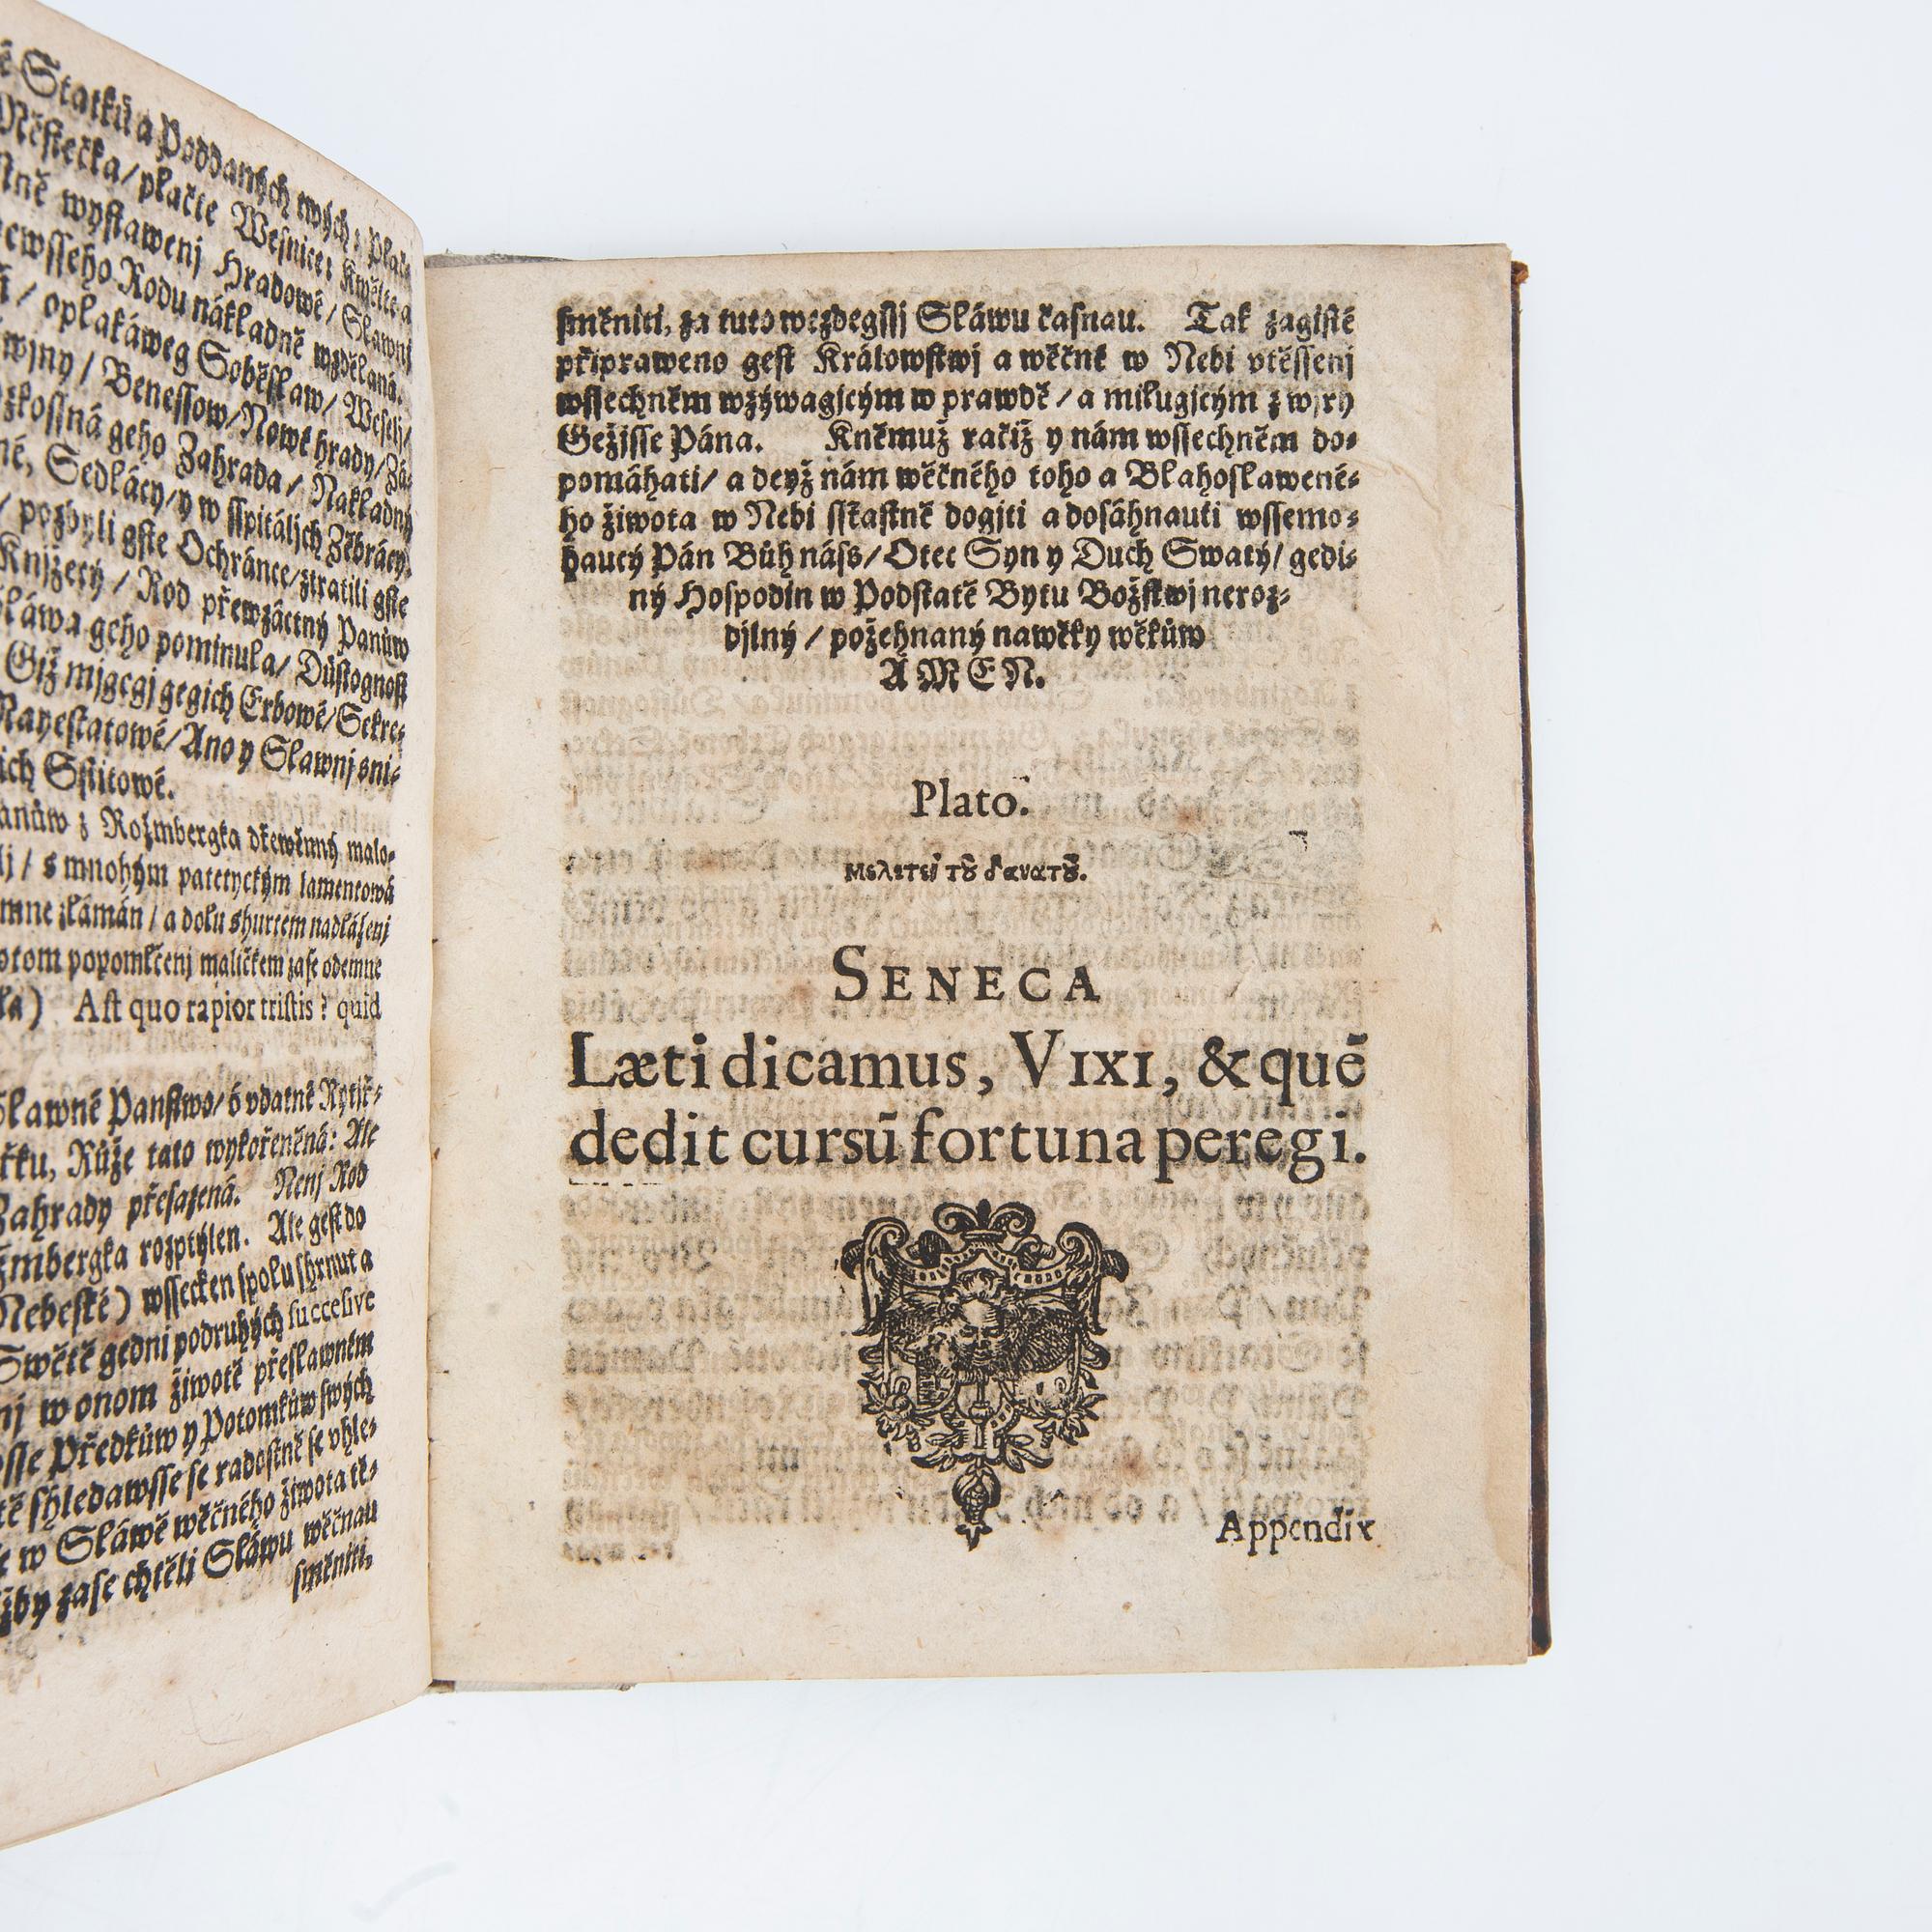 Statků a Poddaných twých: Plačte
Městečka/ plačte Wesnice: Kwělte a
wystawenj Hradowé/ Slawnj
Rodu nákladně wzdělaná.
/ oplakáweg Soběslaw/ Weselj/
/ Benessow/ Nowé hrady/
geho Zahrada/ Nákladný
Sedlácy/ y w sspitáljch Žebrácy.
/ pozbyli gste Ochránce/ ztratili gste
Knjžecý/ Rod přewzáctný Panůw
geho pominula/ Důstognost
Giž mjgegj gegich Erbowé/ Sekre-
Mayestatowé/ Ano y Slawnj
Sstitowé.
z Rožmbergka dřewěnný malo-
/ s mnohým patetyckým lamentowá
zlámán/ a dolu shurtem nadláženj
popomlčenj maličkém zase odemne
Ast quo rapior tristis? quid
Slawné Panstwo/ ó vdatné Rytjř-
Růže tato wykořeněná: Ale
Zahrady přesazená. Nenj Rod
rozptýlen. Ale gest do
Nebeské) wssecken spolu shrnut a
Swětě gedni po druhých successive
w onom žiwotě přeslawném
Předkůw y Potomkůw swých
shledawsse se radostně se vhle-
w Sláwě wěčného žiwota tě-
zase chtěli Sláwu wěčnau
směniti,
směniti, za tuto wezdegssj Sláwu časnau. Tak zagisté
připraweno gest Králowstwj a wěčné w Nebi vtěssenj
wssechněm wzýwagjcým w prawdě/ a milugjcým z wjry
Gežjsse Pána. Kněmuž račiž y nám wssechněm do-
pomáhati/ a deyž nám wěčného toho a Blahoslawené-
ho žiwota w Nebi sstastně dogjti a dosáhnauti wssemo-
haucý Pán Bůh náss/ Otec Syn y Duch Swatý/ gedi-
ný Hospodin w Podstatě Bytu Božstwj neroz-
djlný/ požehnaný na wěky wěkůw
AMEN.
Plato.
μελετεῖ τȣ̃ θανατȣ̃.
SENECA
Læti dicamus, VIXI, & quē
dedit cursū fortuna peregi.
Appendix